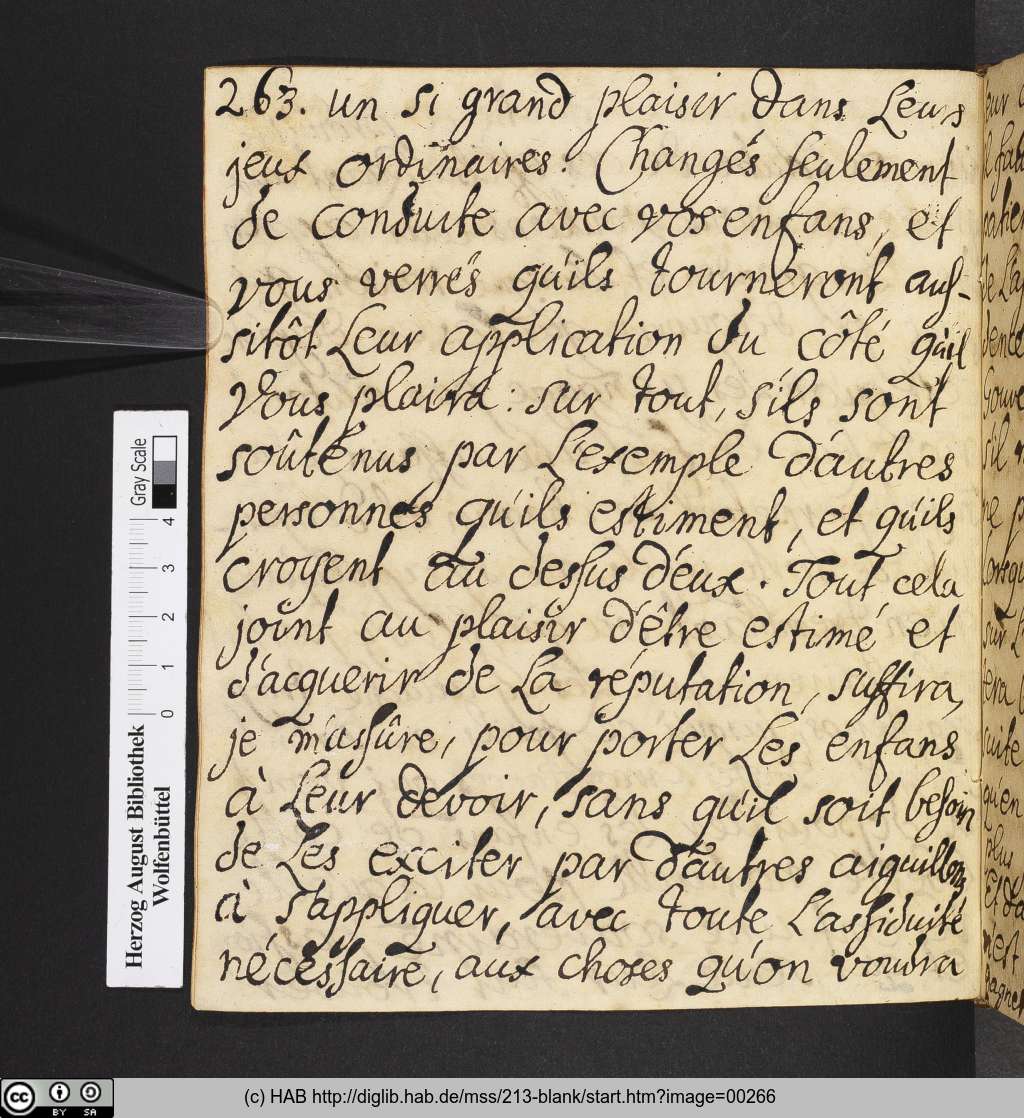 263. un si grand plaisir dans Leurs
jeux ordinaires. Changés seulement
de conduite avec vos enfans, et
vous verrés qu'ils tourneront aus-
sitôt Leur application du côté qu'il
Vous plaira: sur tout, s'ils sont
soûtenus par L'exemple d'autres
personnes qu'ils estiment, et qu'ils
croyent au dessus d'eux. Tout cela
joint au plaisir d'être estimé et
d'acquerir de La réputation, suffira,
je m'assûre, pour porter Les enfans
à Leur devoir, sans qu'il soit besoin
de Les exciter par d'autres aiguillons
à s'appliquer, avec toute L'assiduité
nécessaire, aux choses qu'on voudra
Herzog August Bibliothek
Wolfenbüttel
Gray Scale
0 1 2 3 4
CC BY SA
(c) HAB http://diglib.hab.de/mss/213-blank/start.htm?image=00266